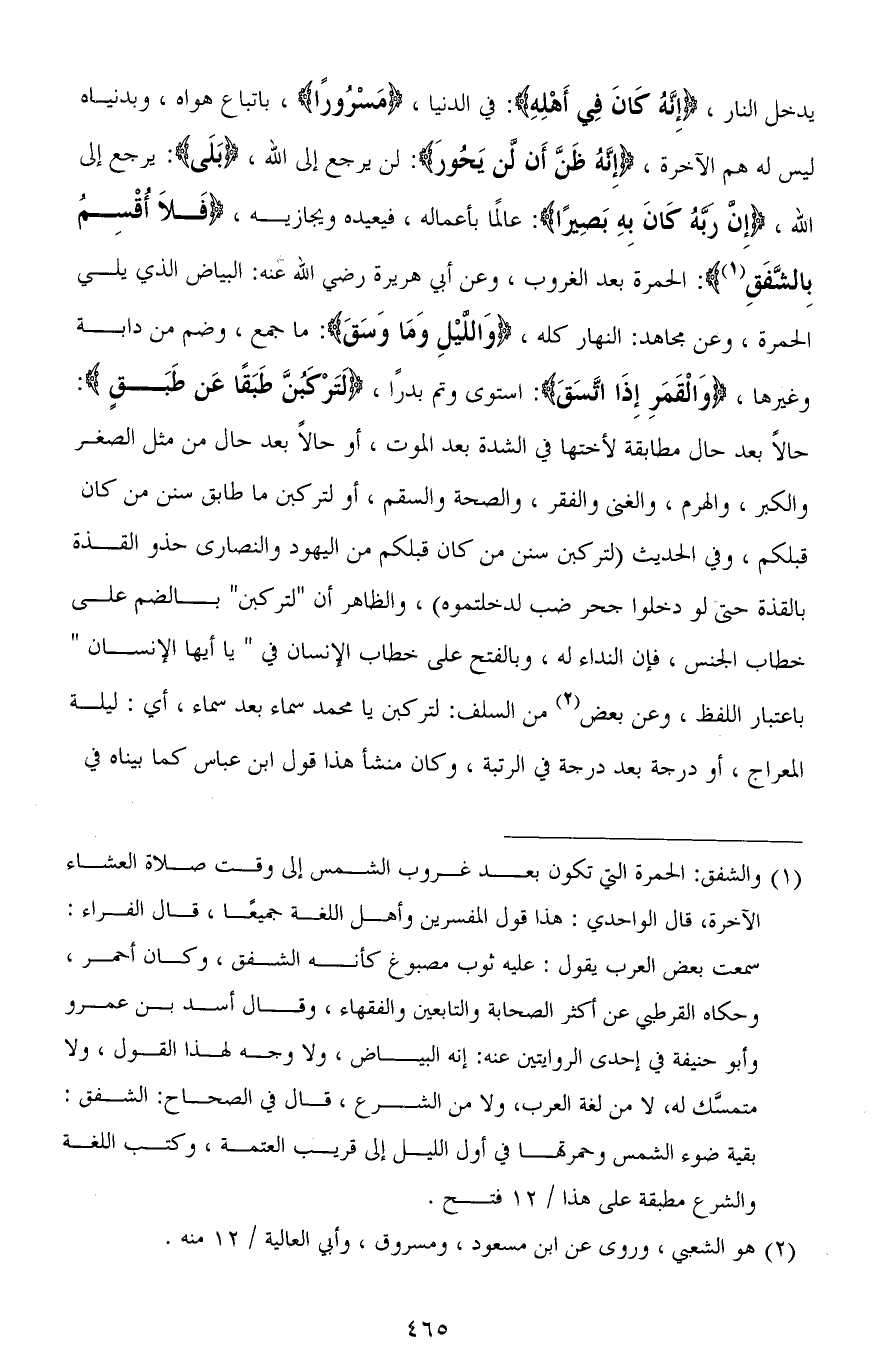 يدخل النار ، ﴿إِنَّهُ كَانَ فِي أَهْلِهِ﴾: في الدنيا ، ﴿مَسْرُورًا﴾ ، باتباع هواه ، وبدنياه
ليس له هم الآخرة ، ﴿إِنَّهُ ظَنَّ أَن لَّن يَحُورَ﴾: لن يرجع إلى الله ، ﴿بَلَى﴾: يرجع إلى
الله ، ﴿إِنَّ رَبَّهُ كَانَ بِهِ بَصِيرًا﴾: عالمًا بأعماله ، فيعيده ويجازيه ، ﴿فَلاَ أُقْسِمُ
بِالشَّفَقِ(١)﴾: الحمرة بعد الغروب ، وعن أبي هريرة رضي الله عنه: البياض الذي يلي
الحمرة ، وعن مجاهد: النهار كله ، ﴿وَاللَّيْلِ وَمَا وَسَقَ﴾: ما جمع ، وضم من دابة
وغيرها ، ﴿وَالْقَمَرِ إِذَا اتَّسَقَ﴾: استوى وتم بدرًا ، ﴿لَتَرْكَبُنَّ طَبَقًا عَن طَبَقٍ ﴾:
حالاً بعد حال مطابقة لأختها في الشدة بعد الموت ، أو حالاً بعد حال من مثل الصغر
والكبر ، والهرم ، والغنى والفقر ، والصحة والسقم ، أو لتركبن ما طابق سنن من كان
قبلكم ، وفي الحديث (لتركبن سنن من كان قبلكم من اليهود والنصارى حذو القذة
بالقذة حتى لو دخلوا جحر ضب لدخلتموه) ، والظاهر أن "لتركبن" بالضم على
خطاب الجنس ، فإن النداء له ، وبالفتح على خطاب الإنسان في " يا أيها الإنسان "
باعتبار اللفظ ، وعن بعض(٢) من السلف: لتركبن يا محمد سماء بعد سماء ، أي : ليلة
المعراج ، أو درجة بعد درجة في الرتبة ، وكان منشأ هذا قول ابن عباس كما بيناه في
(١) والشفق: الحمرة التي تكون بعد غروب الشمس إلى وقت صلاة العشاء
الآخرة، قال الواحدي : هذا قول المفسرين وأهل اللغة جميعًا ، قال الفراء :
سمعت بعض العرب يقول : عليه ثوب مصبوغ كأنه الشفق ، وكان أحمر ،
وحكاه القرطبي عن أكثر الصحابة والتابعين والفقهاء ، وقال أسد بن عمرو
وأبو حنيفة في إحدى الروايتين عنه: إنه البياض ، ولا وجه لهذا القول ، ولا
متمسَّك له، لا من لغة العرب، ولا من الشرع ، قال في الصحاح: الشفق :
بقية ضوء الشمس وحمرتها في أول الليل إلى قريب العتمة ، وكتب اللغة
والشرع مطبقة على هذا / ١٢ فتح .
(٢) هو الشعبي ، وروى عن ابن مسعود ، ومسروق ، وأبي العالية / ١٢ منه .
٤٦٥